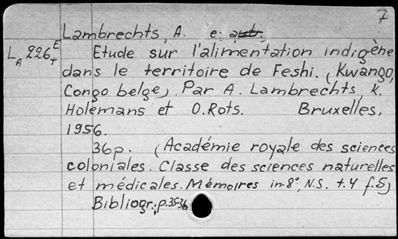 7
Lambrechts, A. e. autr.
L_A 226 E+ Etude sur l'alimentation indigène
dans le territoire de Feshi. (Kwango,
Congo belge). Par A. Lambrechts, K.
Holemans et O. Rots. Bruxelles,
1956.
36p. (Académie royale des sciences
coloniales. Classe des sciences naturelles
et médicales. Mémoires in-8°, N.S. t.4 f.5)
Bibliogr., p.35-36